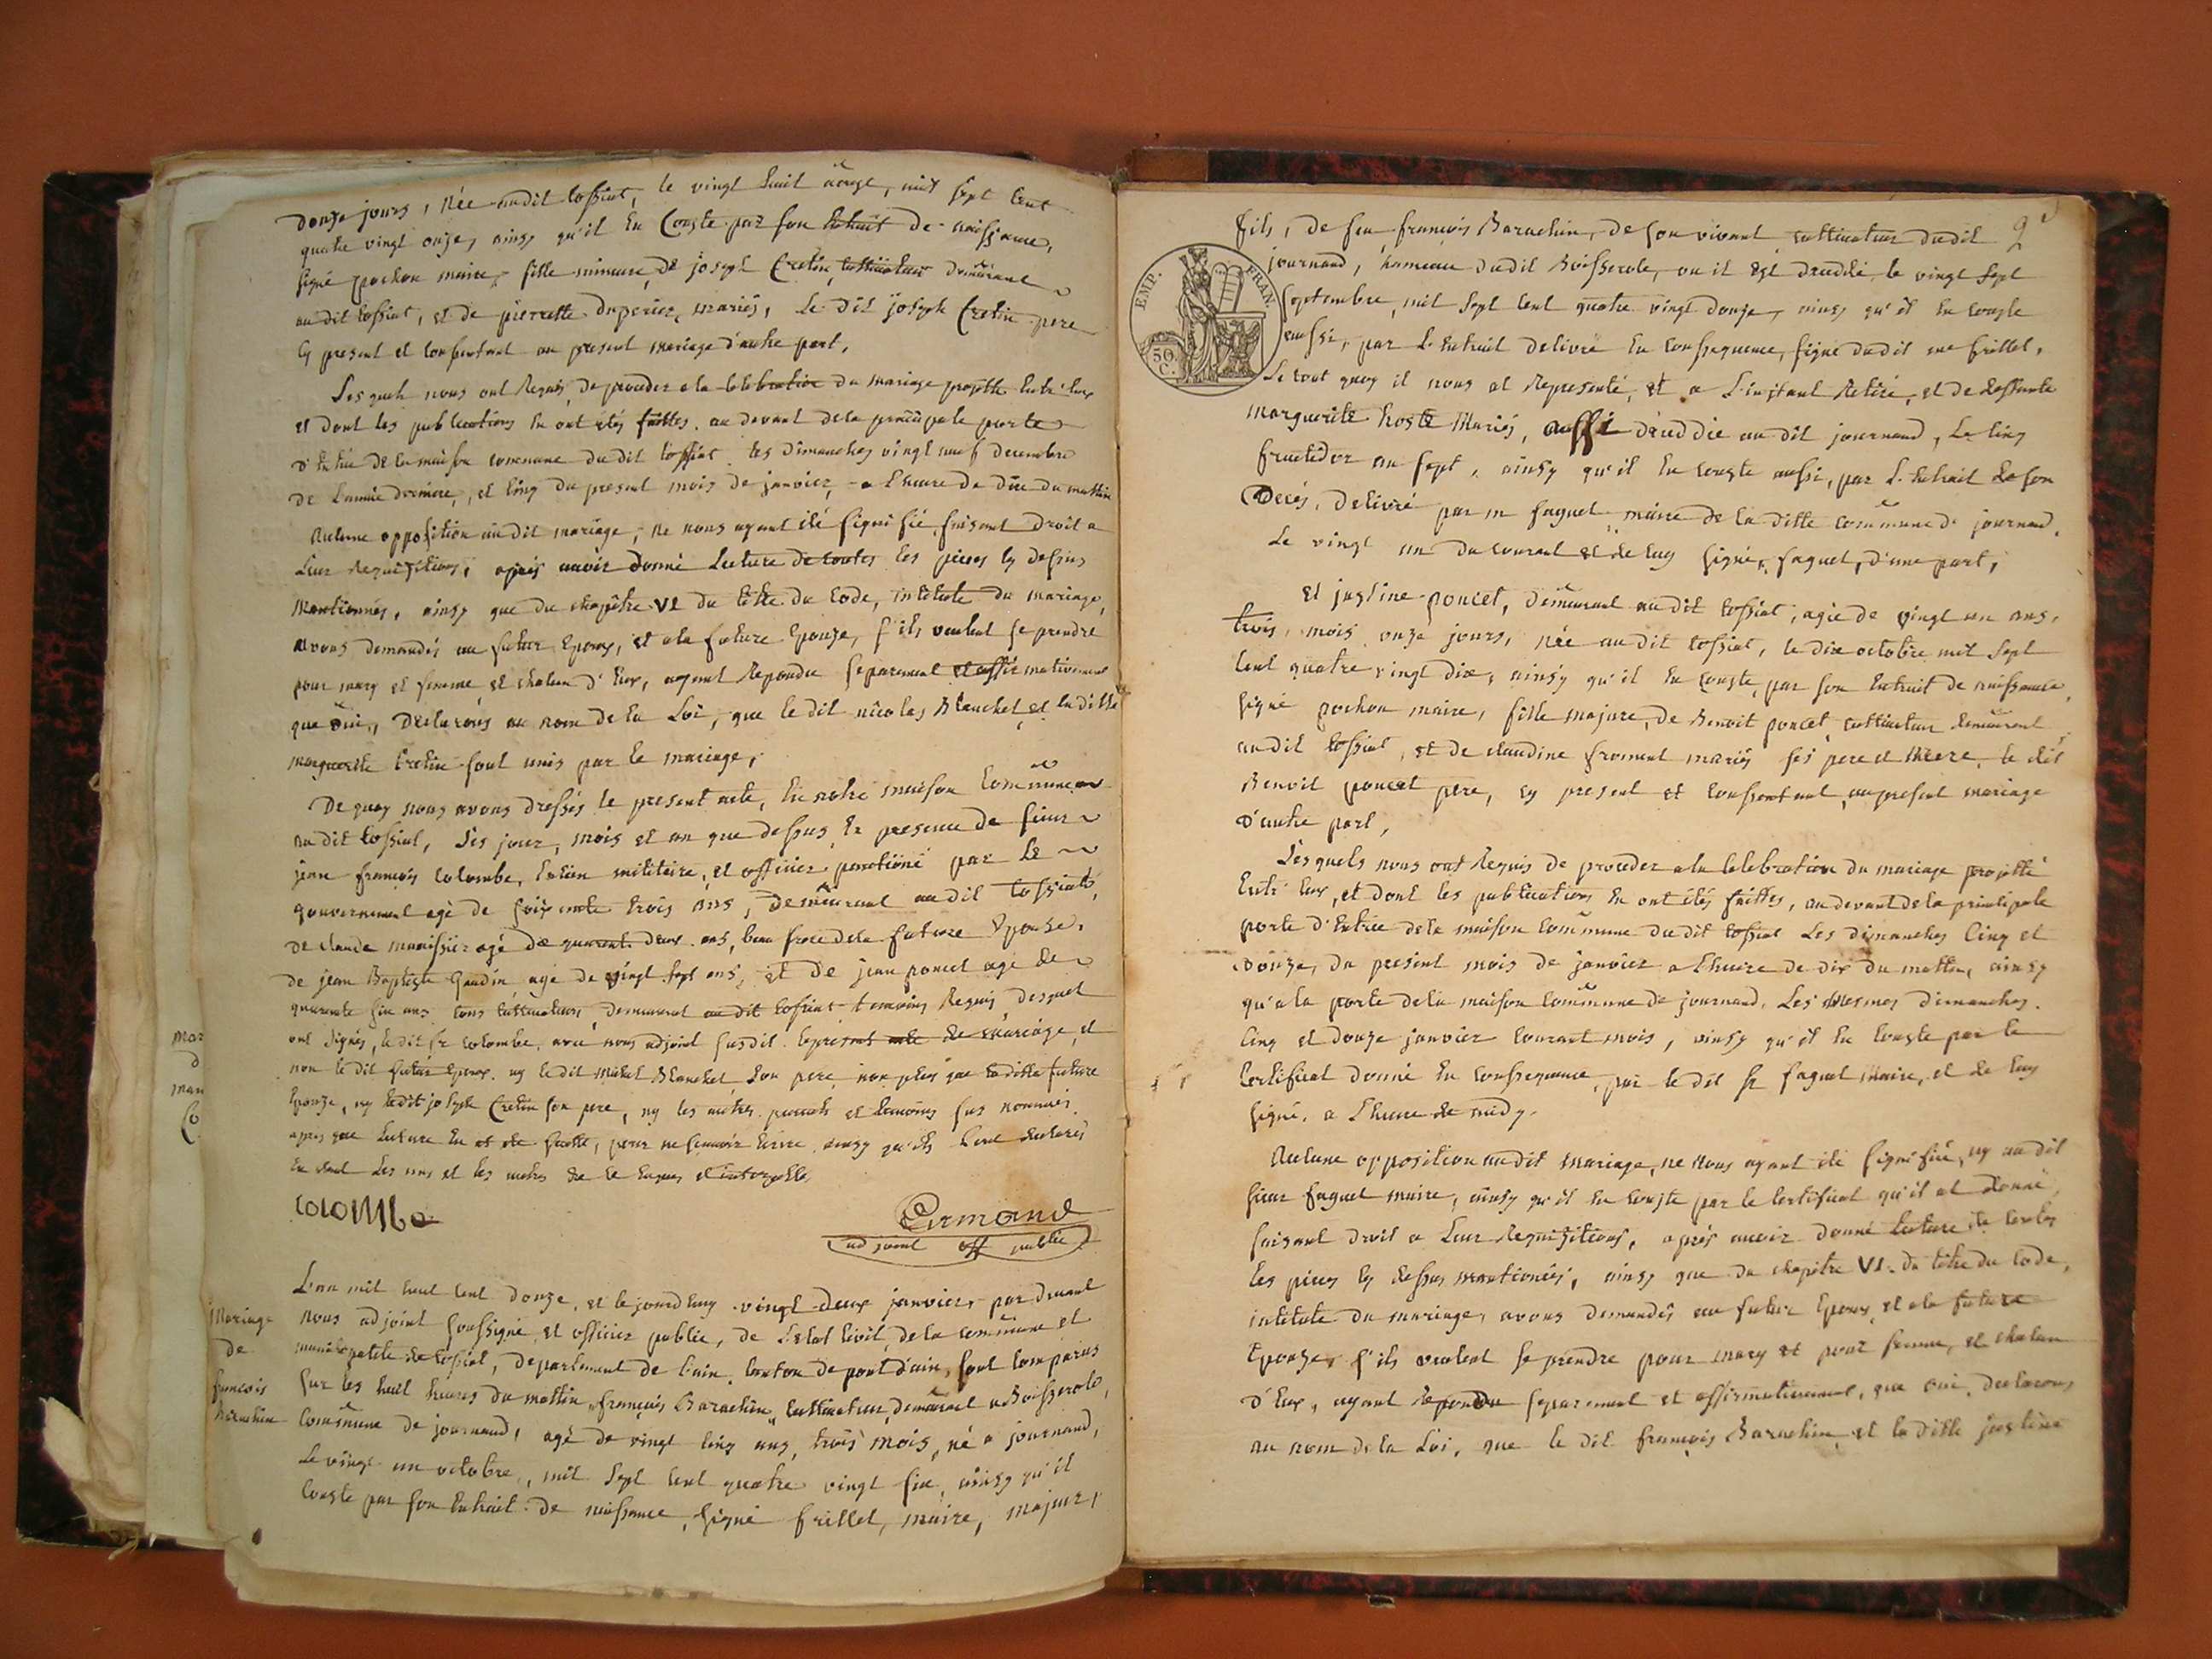 donze jours, née audit tossiat, le vingt huit aougt, mil sept cent
quatre vingt onze, ainsy qu'il En Conste par son Extrait de naissance,
signé pochon maire, fille mineure de joseph Cretin, cultivateur demeurant
au dit tossiat, et de pierrette duperier, mariés, Le dit joseph Cretin pere
Cy present et consentant au present mariage d'autre part,
Les quels nous ont Requis, de proceder a la Celebration du mariage projetté Entr'Eux
et dont les publications En ont etés faittes, au devant de la principale porte
d'Entrée de la maison commune du dit tossiat les dimanches vingt neuf decembre
de L'année derniere, et cinq du present mois de janvier, a L'heure de dix du mattin
Aucune opposition au dit mariage, ne nous ayant été signiffié, faisant droit a
Leur Requisitions, après avoir donné Lecture de toutes les pieces cy dessus
Mentionnés, ainsy que du chapitre VI du tittre du Code, intitulé du mariage,
avons demandés au futur Epoux, et a la future Epouze, s'ils veulent se prendre
pour mary et femme et chacun d'Eux, ayant Repondu separement et affirmativement
que oui, declarons au nom de la Loi, que le dit nicolas Blanchet, et la ditte
marguerite Cretin sont unis par le mariage,
De quoy nous avons dressés le present acte, En notre maison Commune
au dit tossiat, Les jour, mois et an que dessus, En presence de sieur
jean françois Colombe, Encien militaire, et officier penctioné par Le
gouvernement agé de soixente trois ans, demeurant au dit tossiat,
de claude maoissier agé de quarente deux ans, beau frere de la future Epouze,
de jean Baptiste Gaudin agé de vingt sept ans, et de jean poncet agé de
quarente six ans tous Cultivateurs, demeurant au dit tossiat temoins Requis desquel
ont signés, le dit sr Colombe, avec nous adjoint susdit le present acte de mariage, et
non le dit futur Epoux, ny le dit Blanchet son pere, non plus que la ditte future
Epouze, ny le dit joseph Cretin son pere, ny les autres parents et temoins sus nommés
après que Lecture En et été faitte, pour ne sçavoir Ecrire ainsy qu'ils L'ont declarés
les uns et les autres de ce Enquis et interpellés,
COLOMbe
Armand
adjoint off public
Mariage
de
francois
Barachin
L'an mil huit cent donze, et le jourd'huy vingt deux janvier, par devant
nous adjoint soussigné et officier public, de L'etat Civil, de la commune et
municipalité de tossiat, departement de l'ain, canton de pont d'ain, sont comparus
sur les huit heures du mattin françois Barachin, Cultivateur, demeurant a Boisserole,
Commune de journand, agé de vingt cinq ans, trois mois, né a journand,
Le vingt un octobre, mil sept cent quatre vingt six, ainsy qu'il
Conste par son Extrait de naissance, signé frillet, maire, majeur,
mar
d
mar
Co
2
EMP. FRAN.
50 C.
fils, de feu françois Barachin, de son vivant cultivateur dudit
journand, hameau dudit Boisserole, ou il est deceddé le vingt sept
septembre, mil sept cent quatre vingt donze, ainsy qu'il En conste
aussi, par L'Extrait delivré En consequence, signé dudit frillet,
Le tout quoy il nous at Representé, et a L'instant Retiré, et de deffunte
marguerite hoste Mariés, aussi deceddée au dit journand, Le cinq
fructidor an sept, ainsy qu'il En conste aussi, par L'Extrait de son
Decés, delivré par m faguet maire de la ditte commune de journand,
Le vingt un du courant et de luy signé, faguet, d'une part,
Et justine poncet, demeurant au dit tossiat, agée de vingt un ans,
trois mois onze jours, née au dit tossiat, le dix octobre mil sept
cent quatre vingt dix, ainsy qu'il En conste, par son Extrait de naissance,
signé pochon maire, fille majure, de Benoit poncet, cultivateur demeurant
audit tossiat, et de claudine froment mariés ses pere et Mere, le dit
Benoit poncet pere, cy present et consentant, au present mariage
d'autre part,
Les quels nous ont Requis de proceder a la Celebration du mariage projetté
Entr'Eux, et dont les publications En ont étés faittes, au devant de la principale
porte d'Entrée de la maison commune du dit tossiat Les dimanches Cinq et
donze, du present mois de janvier a L'heure de dix du mattin, ainsy
qu'a la porte de la maison commune de journand, Les Mesmes dimanches
Cinq et donze janvier courant mois, ainsy qu'il En conste par le
Certificat donné En consequence, par le dit sr faguet Maire, et de luy
signé, a L'heure de midy.
Aucune opposition audit mariage, ne nous ayant été signifié, ny au dit
sieur faguet maire, ainsy qu'il En conste par le Certificat qu'il at donné,
faisant droit a Leur Requisitions, après avoir donné Lecture de toutes
les pieces cy dessus mentionnés, ainsy que du chapitre VI du titre du Code,
intitulé du mariage, avons demandés au futur Epoux, et a la future
Epouze, s'ils veulent se prendre pour mary et pour femme, et chacun
d'Eux, ayant Repondu separement et affirmativement, que oui, declarons
au nom de la Loi, que le dit françois Barachin, et la ditte justine